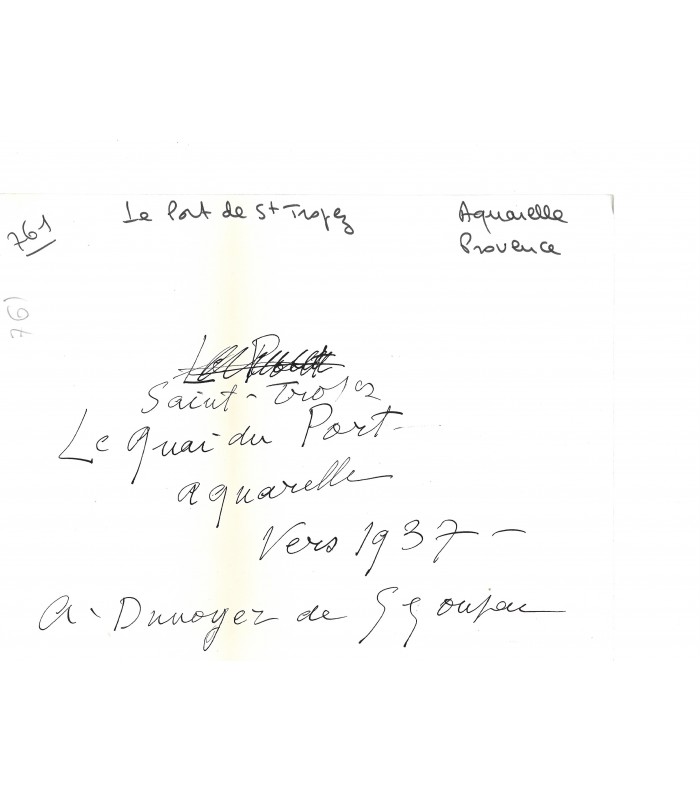 761 Le Port de St Tropez Aquarelle
Provence
761
Saint-Tropez
Le Quai du Port-
aquarelle
Vers 1937-
A. Dunoyer de Segonzac